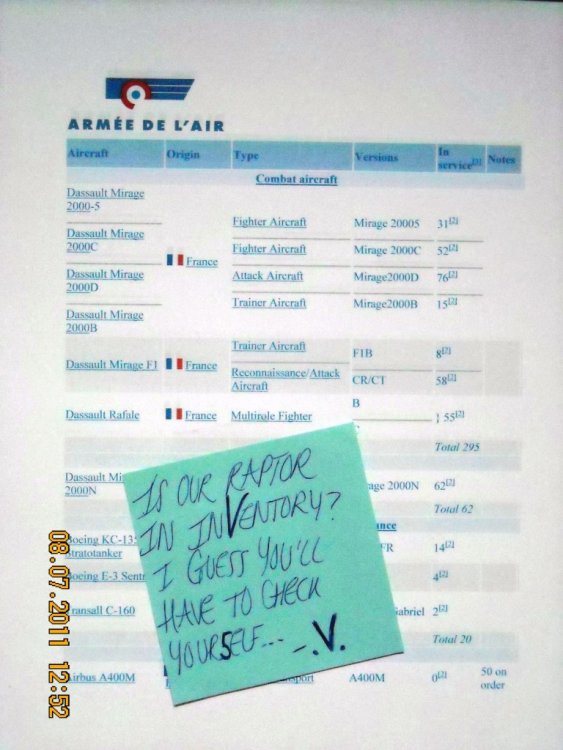 ARMÉE DE L'AIR
Aircraft Origin Type Versions In service[1] Notes
Combat aircraft
Dassault Mirage
2000-5
Fighter Aircraft Mirage 20005 31[2]
Dassault Mirage
2000C
Fighter Aircraft Mirage 2000C 52[2]
France
Dassault Mirage
2000D
Attack Aircraft Mirage2000D 76[2]
Trainer Aircraft Mirage2000B 15[2]
Dassault Mirage
2000B
Trainer Aircraft F1B 8[2]
Dassault Mirage F1 France
Reconnaissance/Attack
Aircraft
CR/CT 58[2]
B
Dassault Rafale France Multirole Fighter } 55[2]
Total 295
2000N 2000N 62[2]
Total 62
Boeing
Stratotanker
FR 14[2]
Boeing E-3 4[2]
Transall C-160 Gabriel 2[2]
Total 20
Airbus A400M A400M 0[2] 50 on
order
IS OUR RAPTOR
IN INVENTORY?
I GUESS YOU'LL
HAVE TO CHECK
YOURSELF... -.V.
08.07.2011 12:52